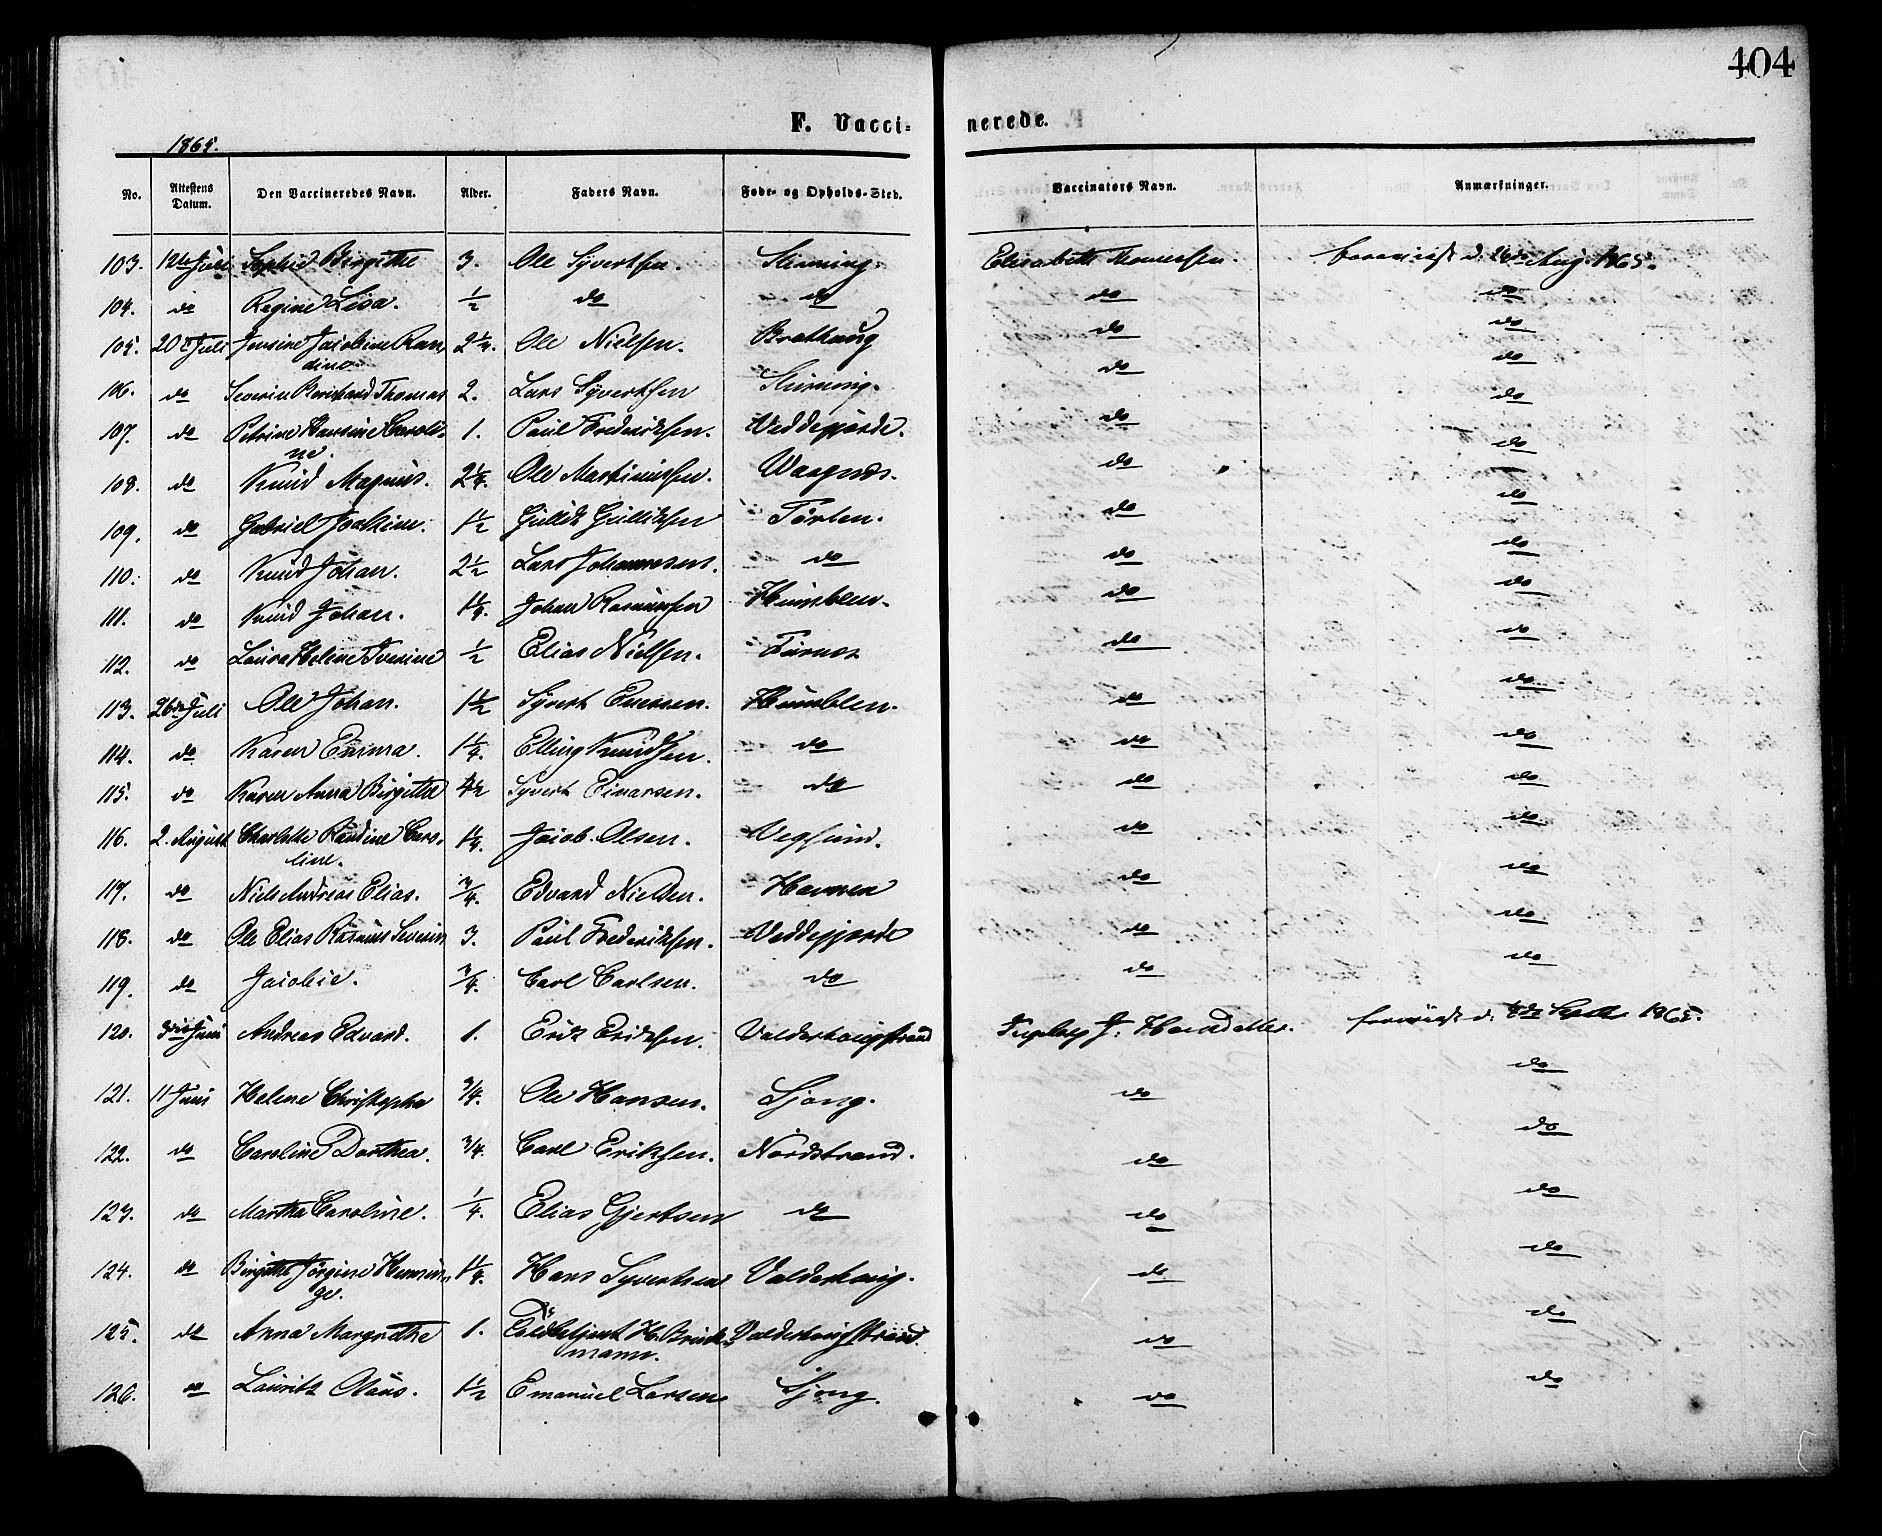 404
F. Vacci- nerede.
1865.
No. Attestens Datum. Den Vaccineredes Navn. Alder. Faders Navn. Føde- og Opholds-Sted. Vaccinators Navn. Anmærkninger.
103. 12te Juli Sophie Birgithe 3. Ole Syvertsen. Elisabeth Aug. 1865.
104. do Regine Lisa. 1/2 do do do do
105. 20de Juli Jensine Jacobine Ran- 2 1/4. Ole Nielsen. Brathaug do do
dine
106. do Severin Bernhard Thomas 2. Lars Syvertsen do do
107. do Petrine Hansine Caroli- 1. Paul Frederiksen. Veddegjærde. do do
ne.
108. do Knud Magnus. 2 1/4. Ole Martinussen. Vaagnæs. do do
109. do Gabriel Joakim. 1 1/2 Gullik Gulliksen do do
110. do Knud Johan. 2 1/2 Lars Johannesen. do do do
111. do Knud Johan. 1 1/4. Johan Rasmussen Humblen. do do
112. do Laura Helene Iverine 1/2 Elias Nielsen. Furnæs do do
113. 26de Juli Ole Johan. 1 1/2 Syvert Humblen. do do
114. do Karen Emma. 1 1/4. Elling Knudsen. do do do
115. do Karen Anna Birgitha Syvert Einarsen. do do do
116. 2. August Charlotte Randine Caro- 1 1/4. Jacob Olsen. Vegsund. do do
line.
117. do Niels Andreas Elias. 3/4. Edvard Nielsen. Havnen do do
118. do Ole Elias Rasmus Severin 3. Paul Frederiksen. Veddegjærde do do
119. do 3/4. Carl Carlsen. do do do
120. Juni Andreas Edvard. 1. Erik Eriksen. Valderhaugstrand Ingeborg J. 1865.
121. 11 Juni Helene Christopha 3/4. Ole Hansen. Sjong. do do
122. do Caroline Dorthea. 3/4. Carl Eriksen. Nordstrand. do do
123. do Martha Caroline. 1/4. Elias Gjertsen do do do
124. do Birgithe Jørgine Hemmin- 1 1/4. Hans Syvertsen Valderhaug. do do
ge.
125. do Anna Margrethe 1. H. Brink- Valderhaugstrand. do do
mann.
126. do Lauritz Olaus. 1 1/2 Emanuel Larsen Sjong. do do